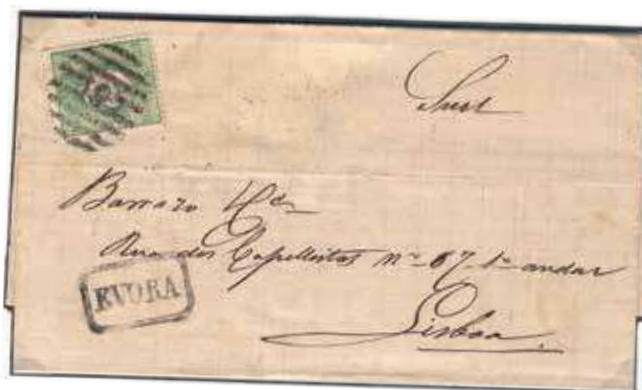 Barrozo & Ca
Rua dos Capellistas nº 67-1º andar
EVORA
Lisboa.